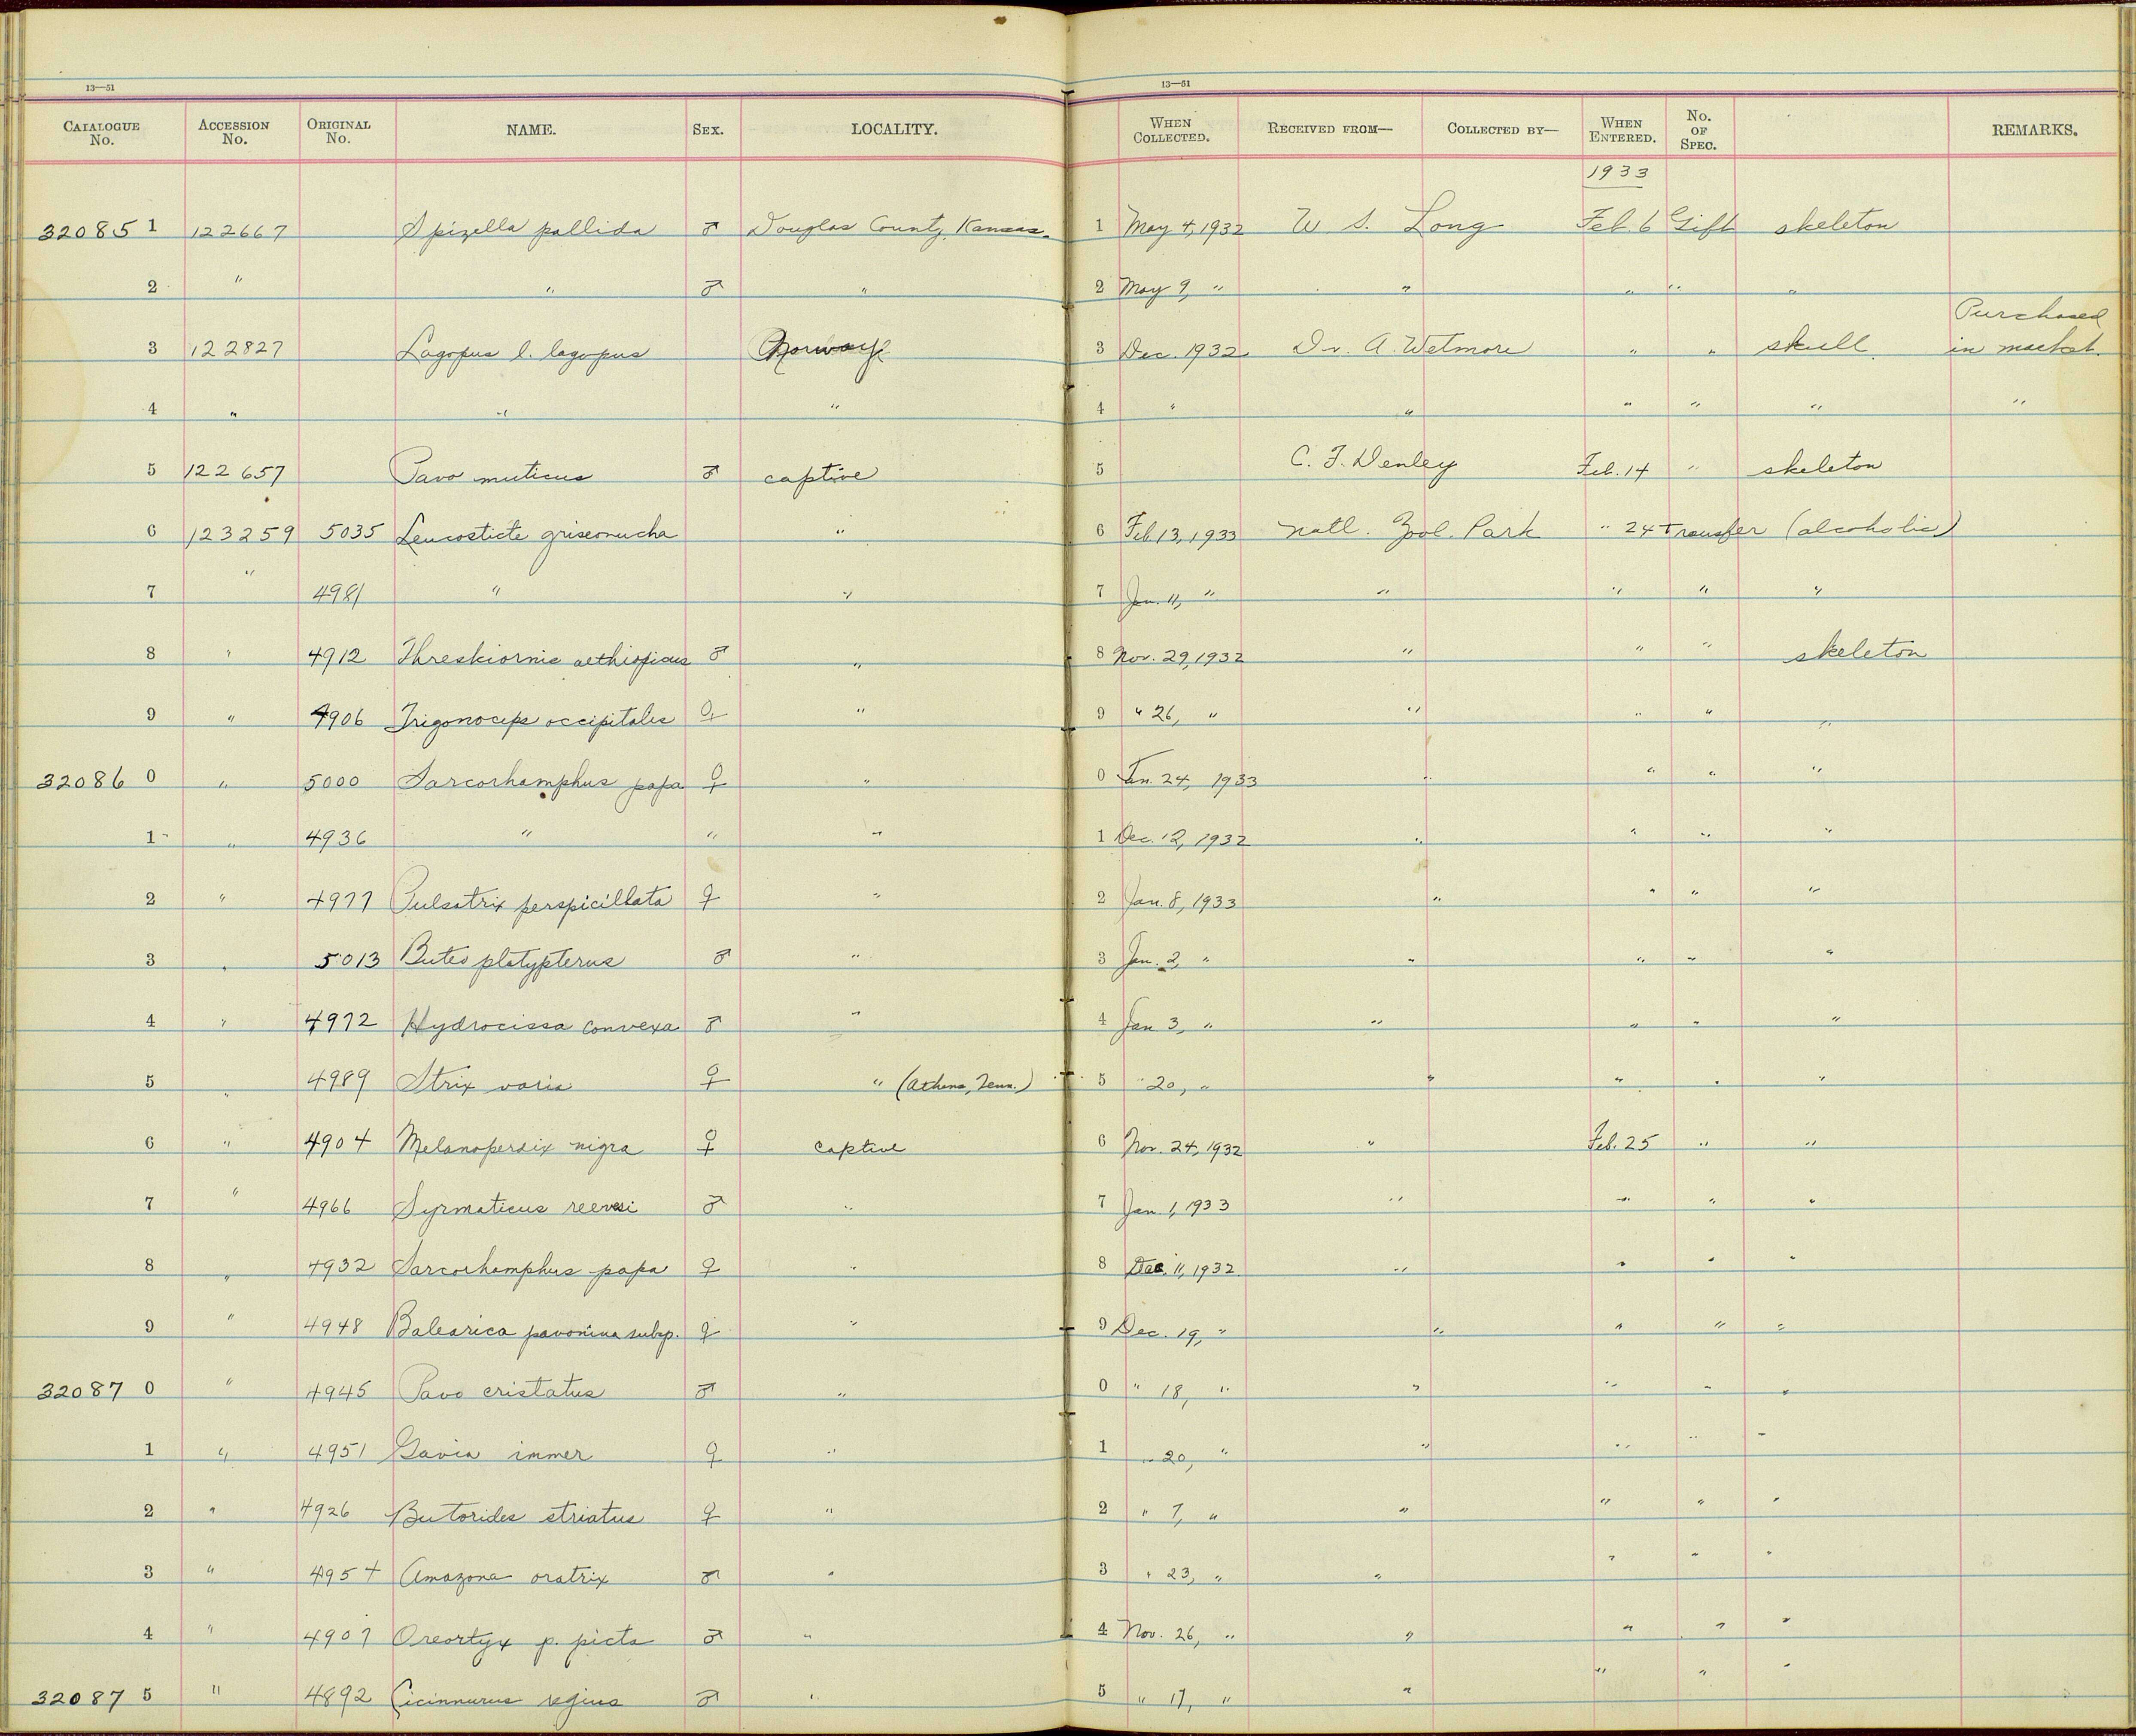 13—51 13—51
CATALOGUE No. ACCESSION No. ORIGINAL No. NAME. SEX. LOCALITY. WHEN COLLECTED. RECEIVED FROM— COLLECTED BY— WHEN ENTERED. No. OF SPEC. REMARKS.
1933
32085 1 122667 Spizella pallida ♂ Douglas County, Kansas. 1 May 4, 1932 W S. Long Feb. 6 Gift skeleton
2 " " ♂ " 2 May 9, " " " " "
3 122827 Lagopus l. lagopus Norway 3 Dec. 1932 Dr. A. Wetmore " " skull Purchased in market.
4 " " " 4 " " " " " "
5 122657 Pavo muticus ♂ captive 5 C. F. Denley Feb. 14 " skeleton
6 123259 5035 Leucosticte griseonucha " 6 Feb. 13, 1933 Natl. Zool. Park " 24 Transfer (alcoholic)
7 " 4981 " " 7 Jan. 11, " " " " "
8 " 4912 Threskiornis aethiopicus ♂ " 8 Nov. 29, 1932 " " " skeleton
9 " 4906 Trigonoceps occipitalis ♀ " 9 " 26, " " " " "
32086 0 " 5000 Sarcorhamphus papa ♀ " 0 Jan. 24, 1933 " " " "
1 " 4936 " " " 1 Dec. 12, 1932 " " " "
2 " 4977 Pulsatrix perspicillata ♀ " 2 Jan. 8, 1933 " " " "
3 " 5013 Buteo platypterus ♂ " 3 Jan. 2, " " " " "
4 " 4972 Hydrocissa convexa ♂ " 4 Jan 3, " " " " "
5 " 4989 Strix varia ♀ " (Athens, Tenn.) 5 " 20, " " " " "
6 " 4904 Melanoperdix nigra ♀ captive 6 Nov. 24, 1932 " Feb. 25 " "
7 " 4966 Syrmaticus reevesi ♂ " 7 Jan. 1, 1933 " " " "
8 " 4932 Sarcorhamphus papa ♀ " 8 Dec. 11, 1932 " " " "
9 " 4948 Balearica pavonina subsp. ♀ " 9 Dec. 19, " " " " "
32087 0 " 4945 Pavo cristatus ♂ " 0 " 18, " " " " "
1 " 4951 Gavia immer ♀ " 1 " 20, " " " " "
2 " 4926 Butorides striatus ♀ " 2 " 7, " " " " "
3 " 4954 Amazona oratrix ♂ " 3 " 23, " " " " "
4 " 4907 Oreortyx p. picta ♂ " 4 Nov. 26, " " " " "
32087 5 " 4892 Cicinnurus regius ♂ " 5 " 17, " " " " "